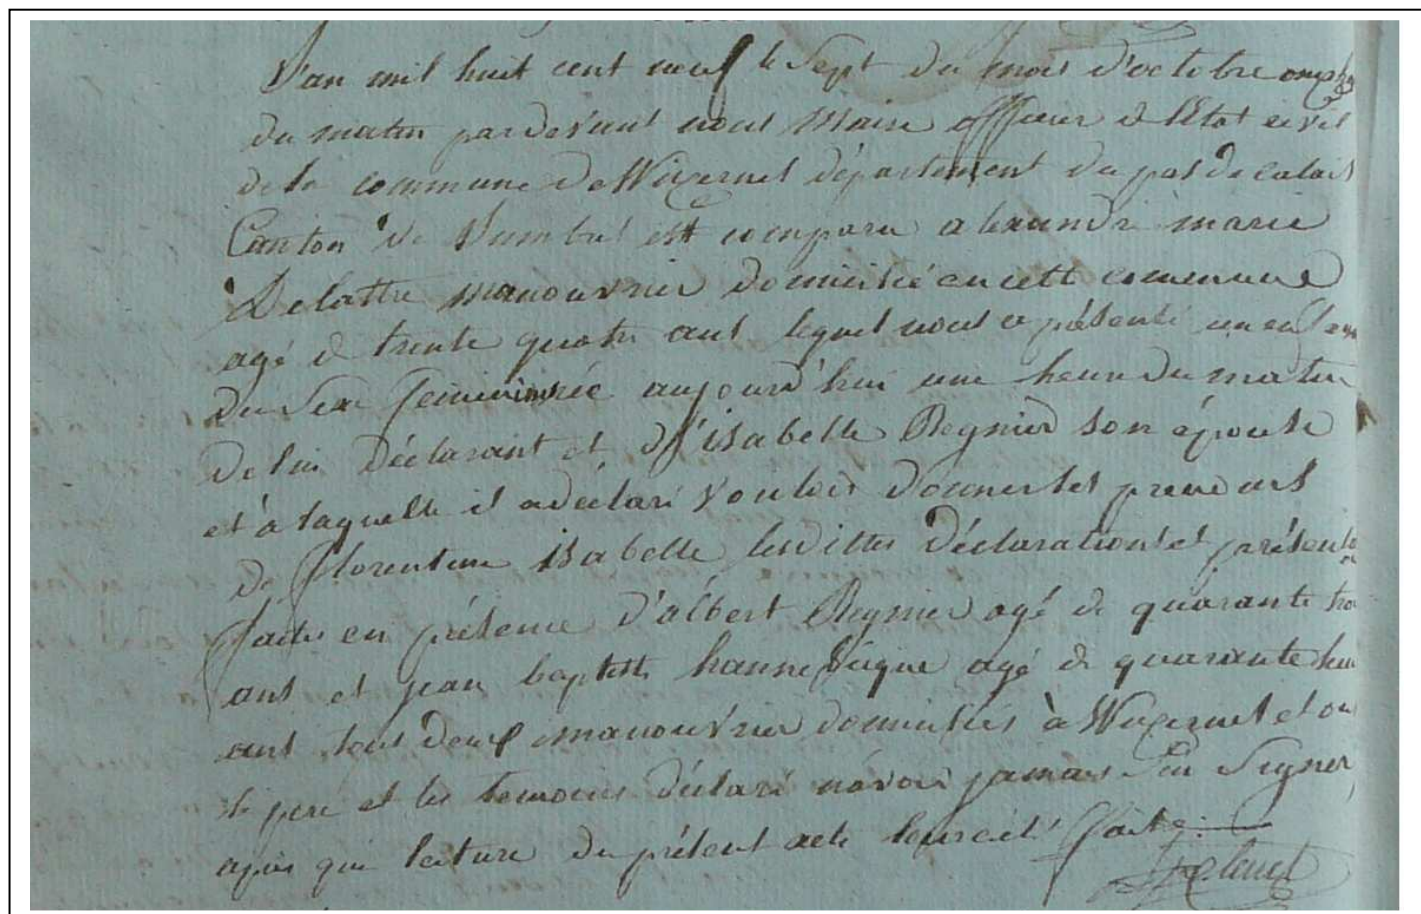 L'an mil huit cent neuf le Sept du mois d'octobre onze h
du matin pardevant nous Maire officier de l'Etat civil
de la commune de Wizernes département du pas de calais
Canton de Lumbres est comparu alexandre marie
Delattre manouvrier domicilié en cette commune
agé de trente quatre ans lequel nous a présenté un enfant
du Sexe feminin née aujourd'hui une heure du matin
de lui déclarant et d'isabelle Regnier son épouse
et à laquelle il a déclaré vouloir donner les prenoms
de florentine isabelle lesdittes déclarations et présent
faites en présence d'albert Regnier agé de quarante trois
ans et jean baptiste hannebique agé de quarante
ans tous deux manouvrier domiciliés à Wizernes et ont
le pere et les temoins déclaré n'avoir jamais Seu Signer
après que lecture du présent acte leur eut faite.